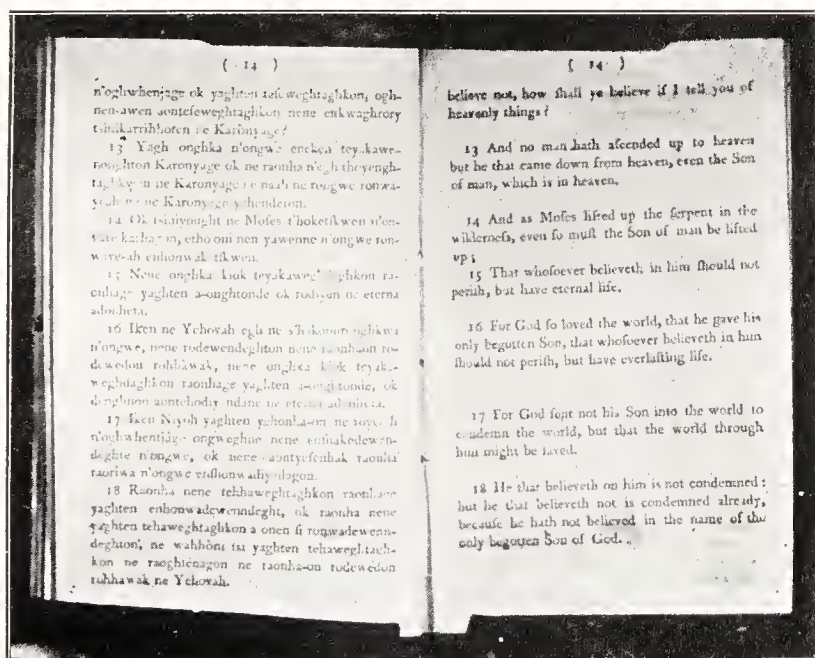 ( 14 )
n'oghwhenjage ok yaghten teſeweghtaghkon, ogh-
nen-awen aonteſeweghtaghkon nene enkwaghrory
tſinikarrihhoten ne Karonyage?
13 Yagh onghka n'ongwe eneken teyakawe-
noughton Karonyage ok ne raonha n'egh
ne Karonyage ne naah ne rongwe ronwa-
ne Karonyage yehenderon.
14 Ok tsiniyought ne Moſes t'hoketſkwen n'on-
etho oni nen yawenne n'ongwe ron-
enhonwak tſkwen.
15 Nene onghka kiok rao-
onhage yaghten a-onghtonde ok rodiyon ne eterna
adonheta.
16 Iken ne Yehovah egh ne
n'ongwe, nene rodewendeghton nene raonhaon ro-
dewedon rohhawak, nene onghka kiok teyaka-
weghdaghkon raonhage yaghten ok
ne eterna
17 Iken Niyoh yaghten ne
n'oghwhentjage ongweghne nene
deghte n'ongwe, ok nene raonha
raoriwa n'ongwe
18 Raonha nene tehhaweghtaghkon raonhage
yaghten enhonwadewenndeght, ok raonha nene
yaghten tehaweghtaghkon a onen ſi ronwadewenn-
deghton, ne wahhòni tsi yaghten tehaweghtagh-
kon ne raoghſenagon ne raonha-on rodewedon
rohhawak ne Yehovah.
( 14 )
believe not, how ſhall ye believe if I tell you of
heavenly things?
13 And no man hath aſcended up to heaven
but he that came down from heaven, even the Son
of man, which is in heaven.
14 And as Moſes lifted up the ſerpent in the
wilderneſs, even ſo muſt the Son of man be lifted
up;
15 That whosoever believeth in him ſhould not
periſh, but have eternal life.
16 For God ſo loved the world, that he gave his
only begotten Son, that whosoever believeth in him
ſhould not periſh, but have everlaſting life.
17 For God ſent not his Son into the world to
condemn the world, but that the world through
him might be ſaved.
18 He that believeth on him is not condemned:
but he that believeth not is condemned already,
becauſe he hath not believed in the name of the
only begotten Son of God.